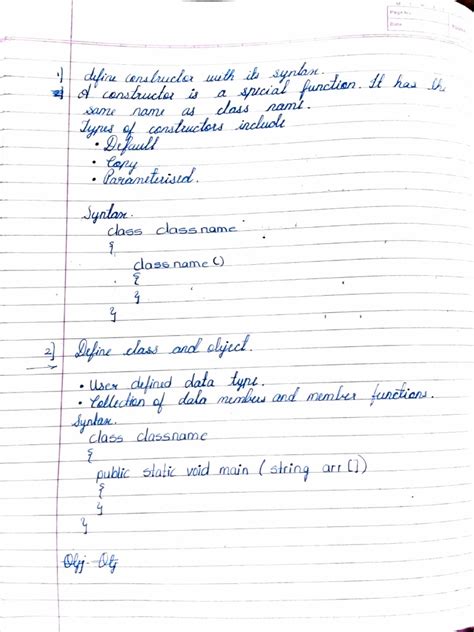 Page No.
Date
1) define constructor with its syntax.
2) A constructor is a special function. It has th
same name as class name.
Types of constructors include
• Default
• Copy
• Parameterised.
Syntax.
class classname
{
classname ()
{
}
}
2] Define class and object.
• User defined data type.
• Collection of data members and member functions.
Syntax.
class classname
{
public static void main ( string arr [])
{
}
}
Obj - Obj